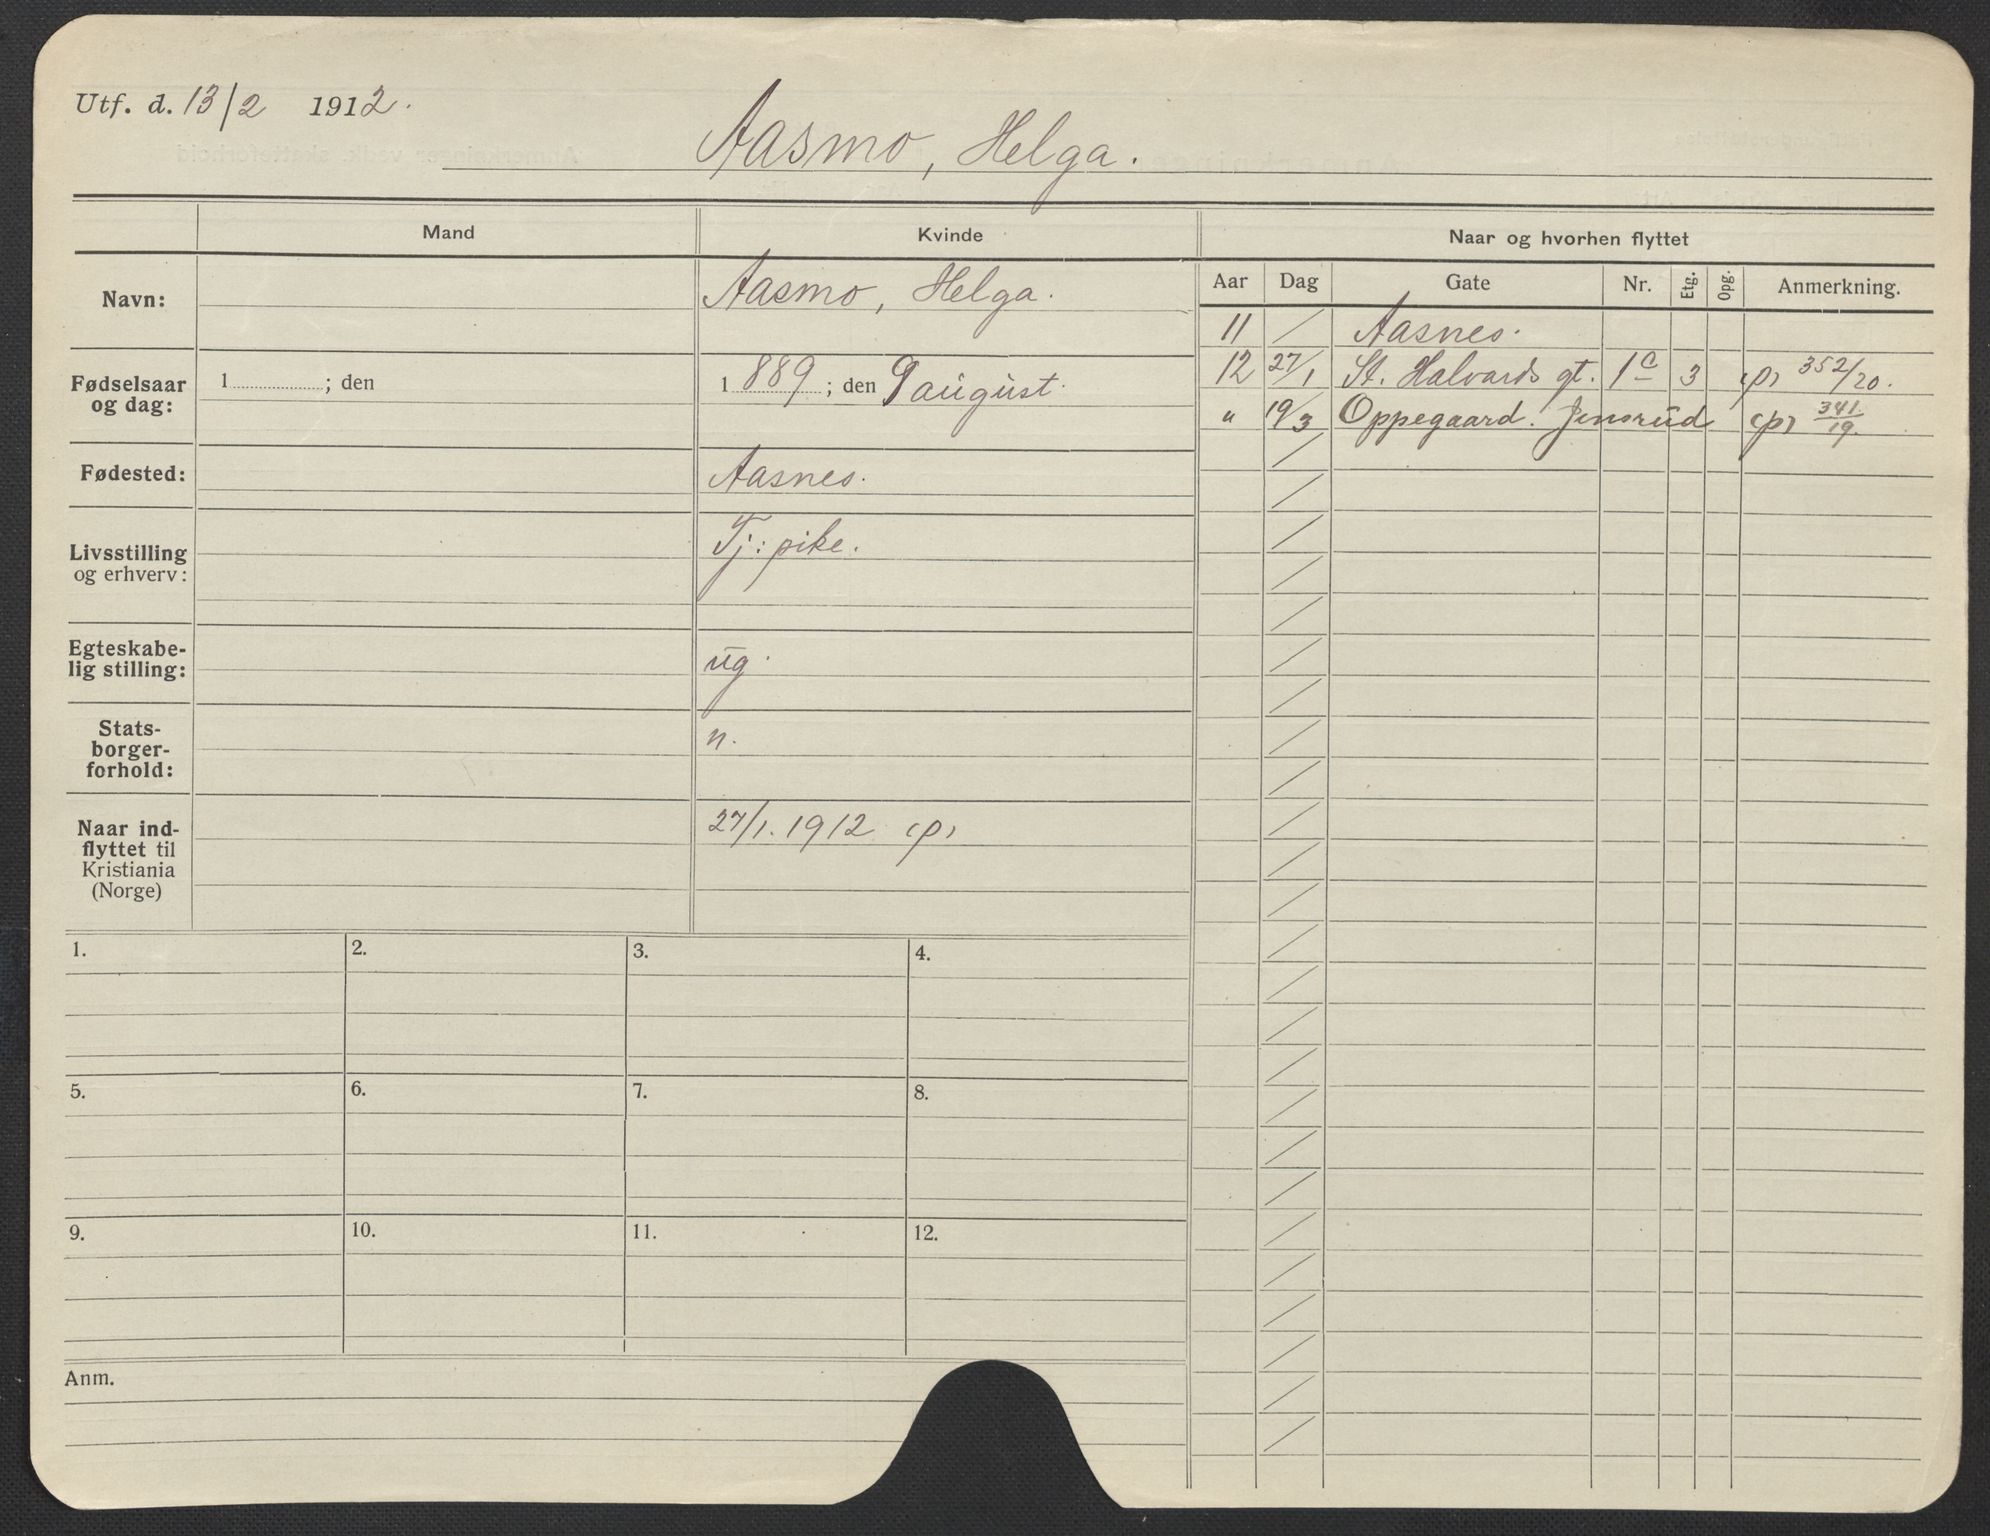 Utf. d. 13/2 1912.
Aasmo, Helga.
Mand
Kvinde
Navn:
Aasmo, Helga.
Fødselsaar og dag:
1 ; den
1 889 ; den 9 august.
Fødested:
Aasnes.
Livsstilling
og erhverv:
Tj: pike.
Egteskabe-
lig stilling:
ug.
Stats-
borger-
forhold:
n.
Naar ind-
flyttet til
Kristiania
(Norge)
27/1. 1912 (p)
Naar og hvorhen flyttet
Aar Dag Gate Nr. Etg. Opg. Anmerkning.
11 / Aasnes.
12 27/1 St. Halvards gt. 1c 3 (p) 352/20.
" 19/3 Oppegaard. Jensrud (p) 341/19.
1. 2. 3. 4.
5. 6. 7. 8.
9. 10. 11. 12.
Anm.